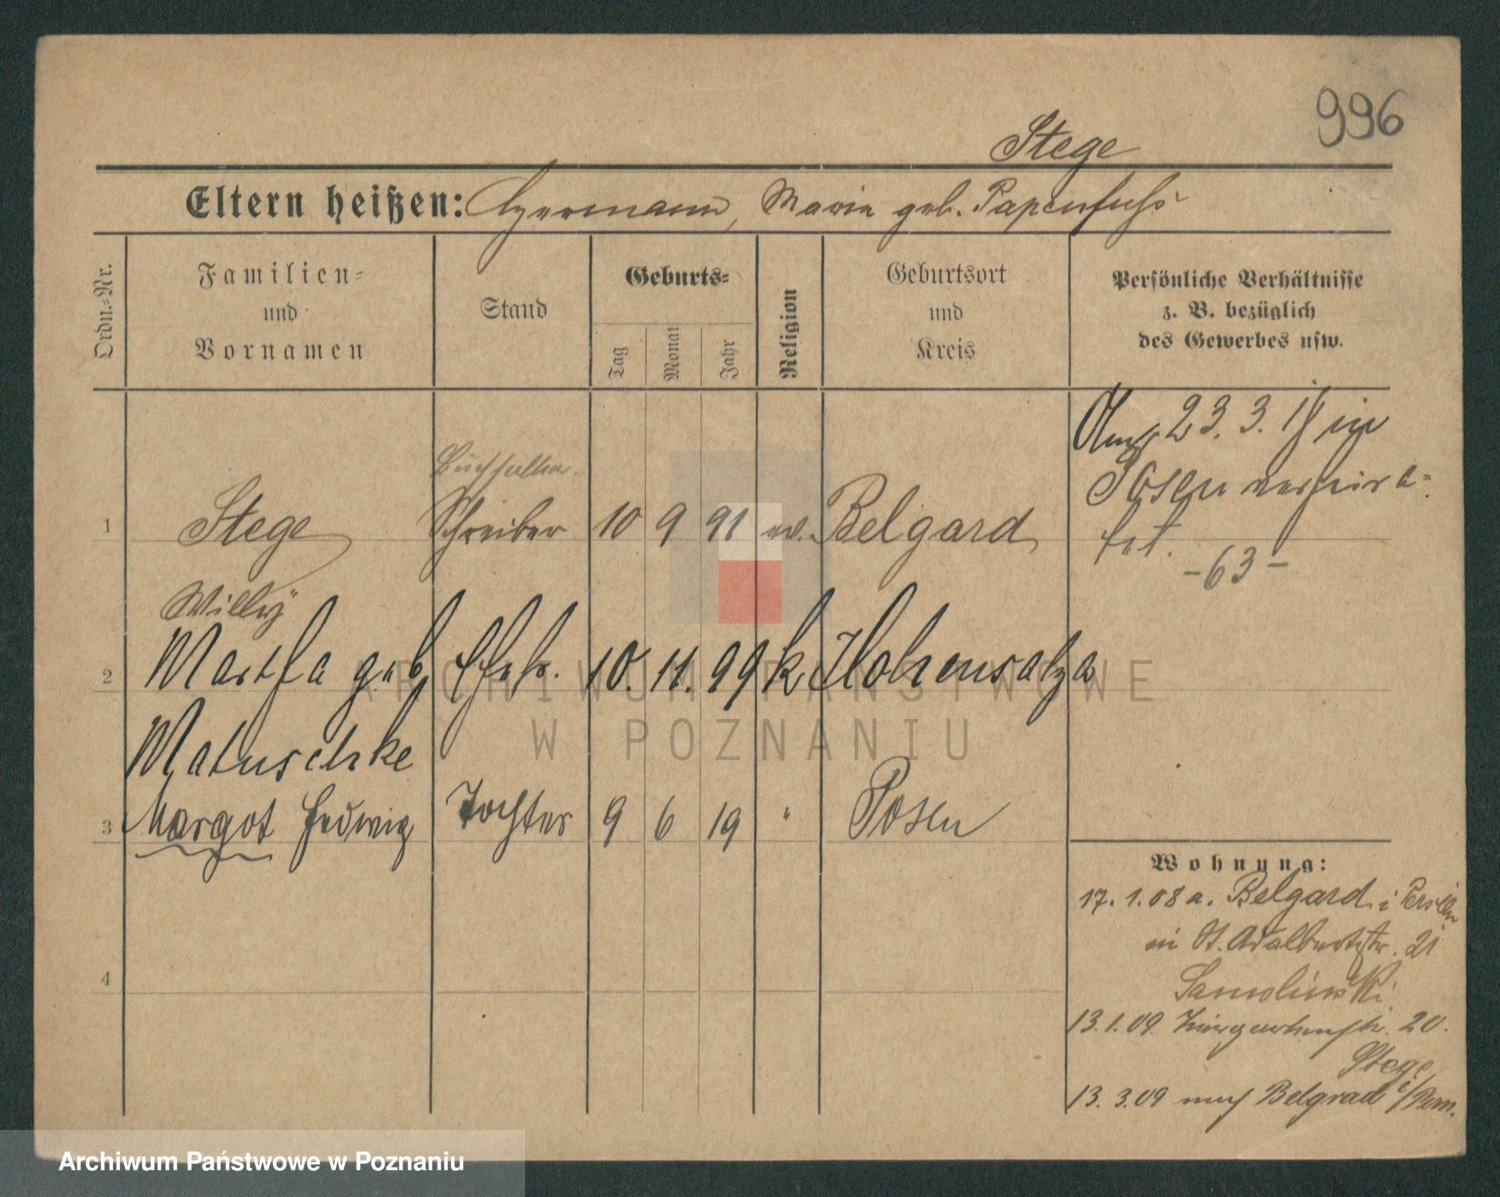 996
Stege
Eltern heißen: Hermann, Maria geb. Papenfuß
Ordn.-Nr.
Familien-
und
Vornamen
Stand
Geburts-
Tag
Monat
Jahr
Religion
Geburtsort
und
Kreis
Persönliche Verhältnisse
z. B. bezüglich
des Gewerbes usw.
Buchhalter.
1 Stege Schreiber 10 9 91 ev. Belgard
Willy
23. 3. in
Posen verheira-
tet.
-63-
2 Martha geb Ehefr. 10. 11. 99 k Hohensalza
Matuschke
3 Margot Hedwig Tochter 9 6 19 " Posen
4
Wohnung:
17. 1. 08 a. Belgard i
in St. Adalbertstr. 21
Samolinski
13. 1. 09. Tiergartenstr. 20.
Stege
13. 3. 09 nach Belgrad i/Pom.
ARCHIWUM PAŃSTWOWE
W POZNANIU
Archiwum Państwowe w Poznaniu